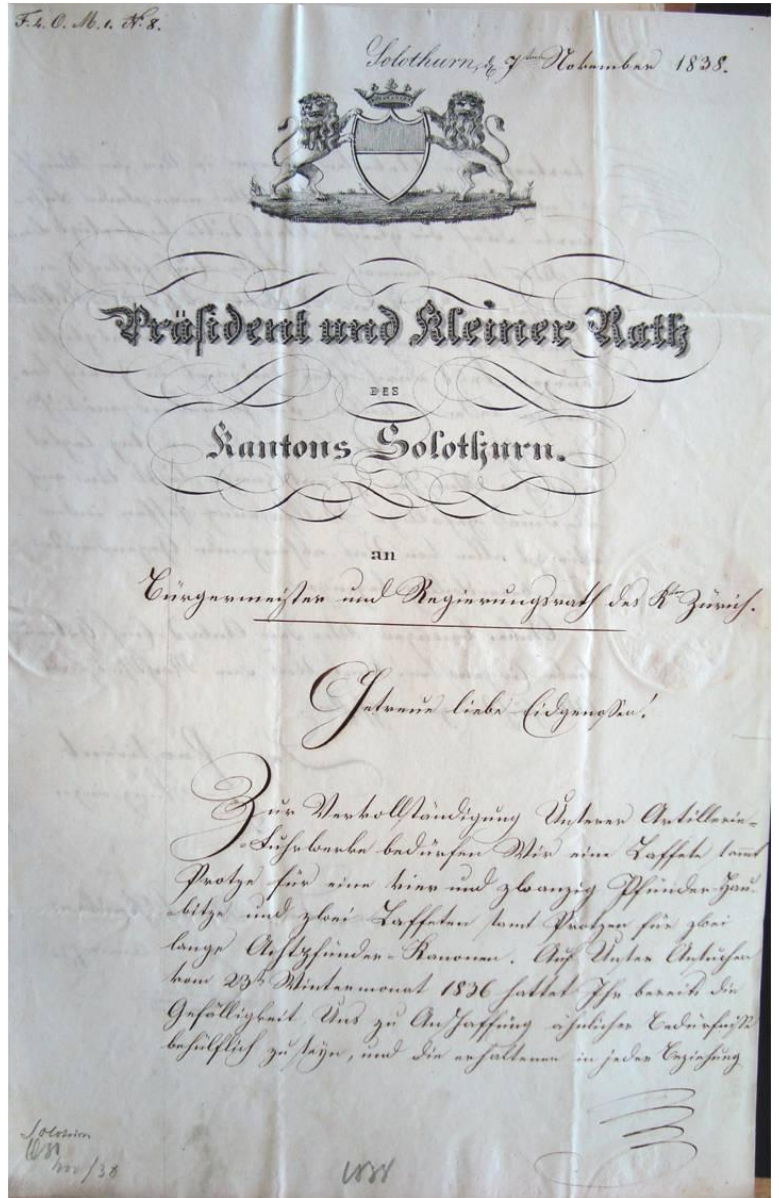 F. 2. O. M. 1. N. 8.
Solothurn, d. 7ten November 1838.
Präsident und Kleiner Rath
DES
Kantons Solothurn.
an
Bürgermeister und Regierungsrath des Kts Zürich.
Getreue liebe Eidgenossen!
Zur Vervollständigung Unserer Artillerie-
Fuhrwerke bedürfen Wir eine Laffete sammt
Protze für eine vier und zwanzig Pfünder-Hau-
bitze und zwei Laffeten samt Protzen für zwei
lange Achtpfünder-Kanonen. Auf Unser Ansuchen
vom 23ten Wintermonat 1836 hattet Ihr bereits die
Gefälligkeit Uns zu Anschaffung ähnlicher Bedürfnisse
behülflich zu seyn, und die erhaltenen in jeder Beziehung
Solothurn
1838